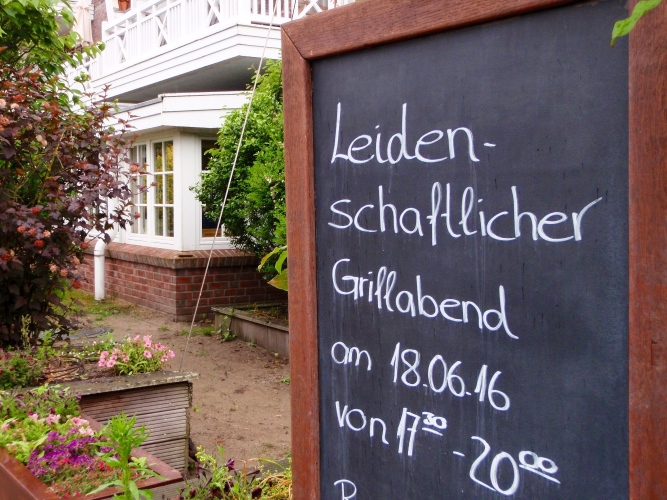 Leiden-
schaftlicher
Grillabend
am 18.06.16
von 17³⁰ - 20⁰⁰